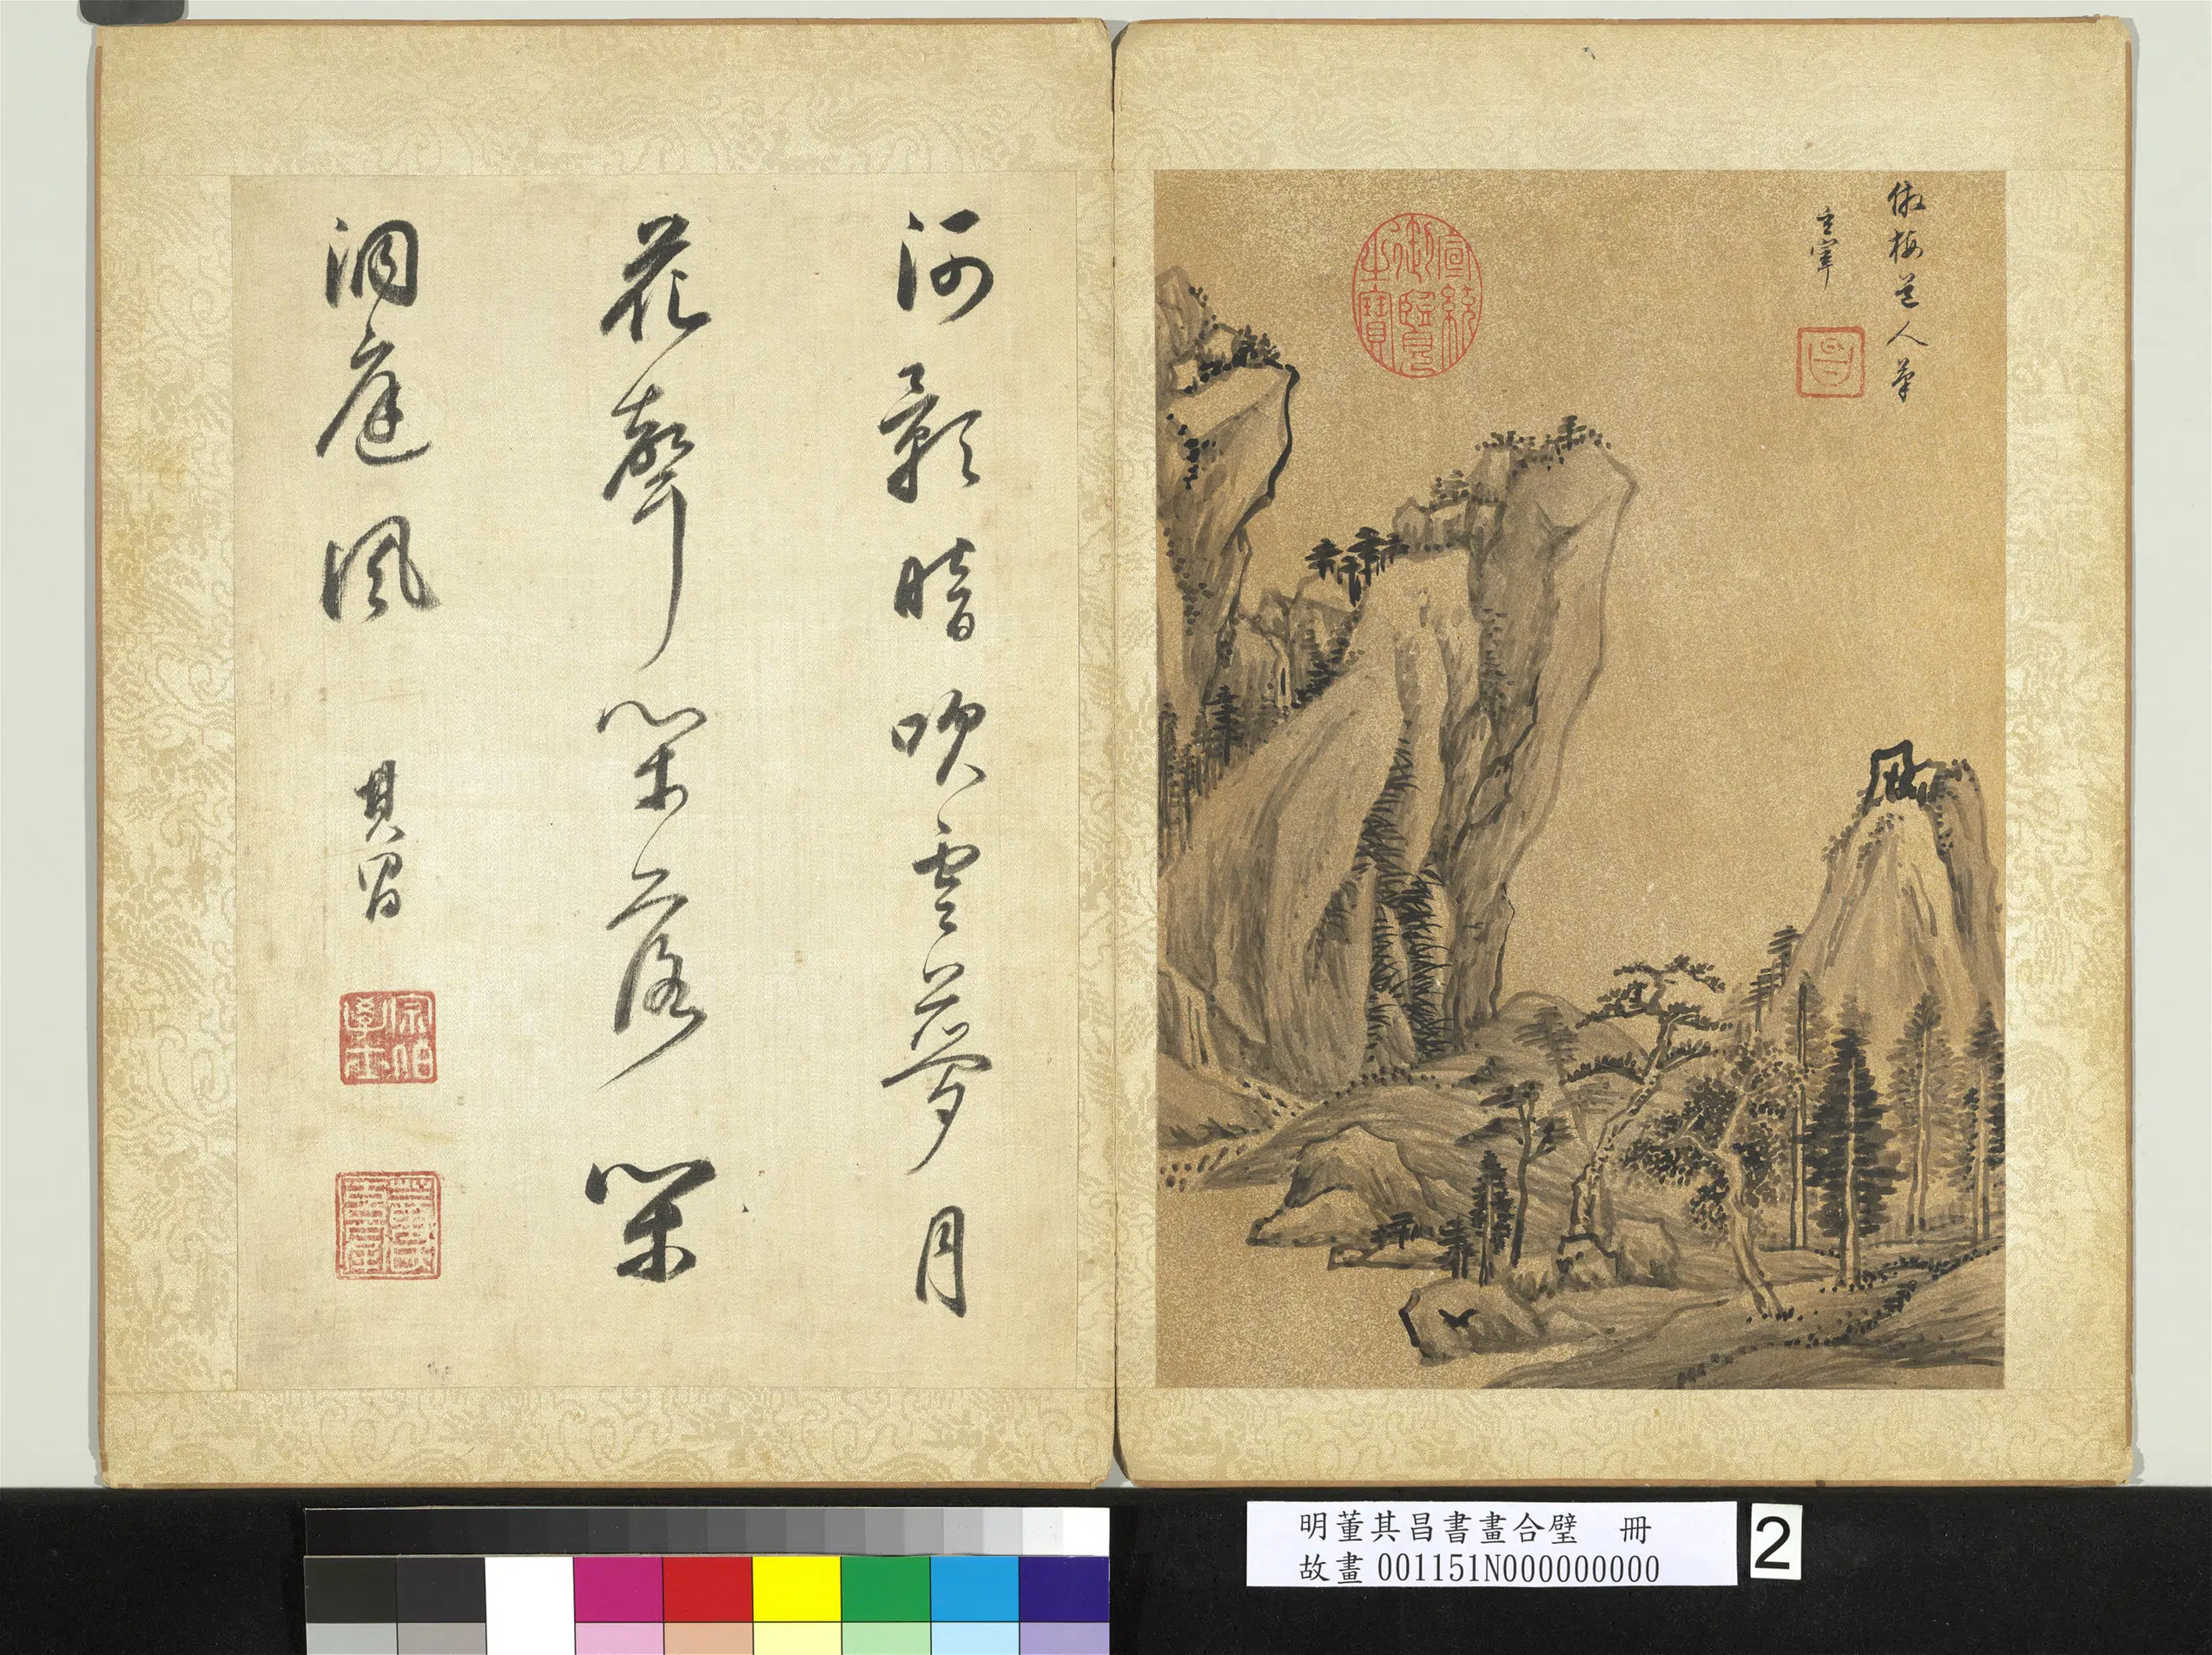 倣梅道人筆
玄宰
昌
宣統御覽之寶
河影暗吹雲夢月
花聲閑落閑
洞庭風
其昌
宗伯學士
董氏玄宰
明董其昌書畫合璧 冊
故畫 001151N000000000
2